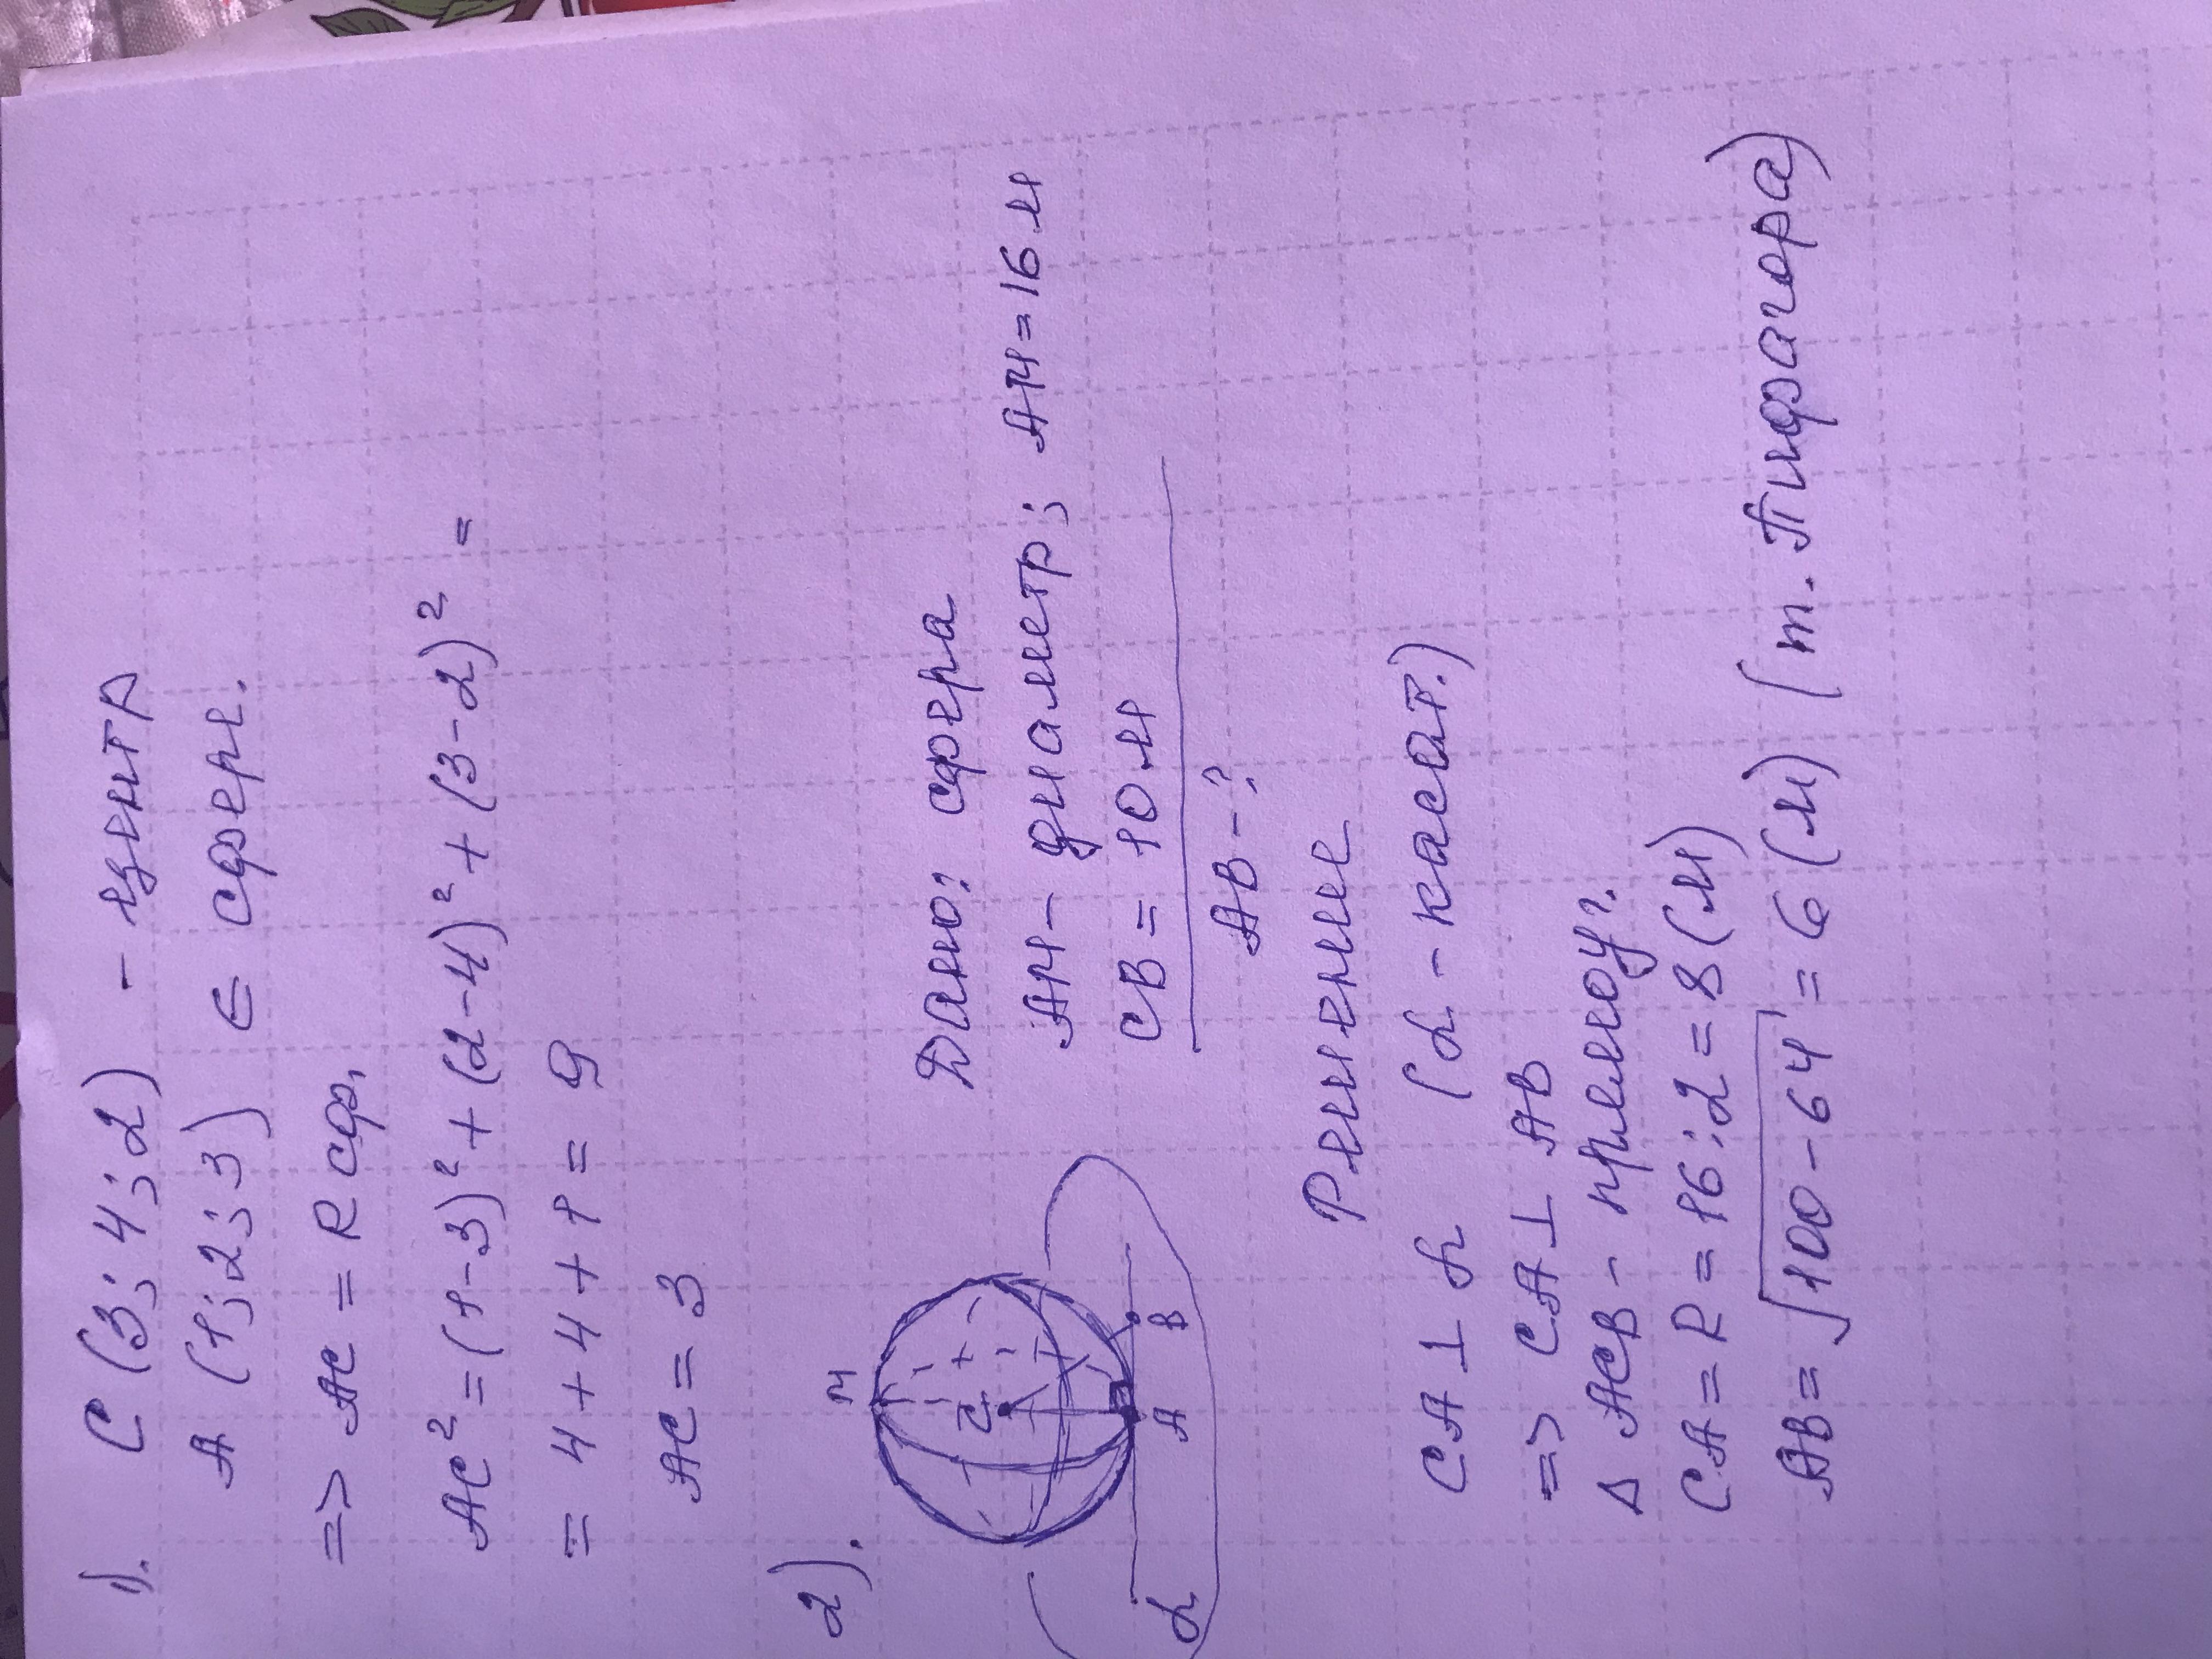 1). C (3; 4; 2) - центр
A (1; 2; 3) ∈ сфере.
=> AC = R сф.
AC² = (1-3)² + (2-4)² + (3-2)² =
= 4 + 4 + 1 = 9
AC = 3
2).
M
C
A
B
α
Дано: сфера
AM - диаметр; AM = 16 м
CB = 10 м
AB - ?
Решение
CA ⊥ α (α - касат.)
=> CA ⊥ AB
Δ ACB - прямоуг.
CA = R = 16 : 2 = 8 (м)
AB = √100 - 64 = 6 (м) (т. Пифагора)